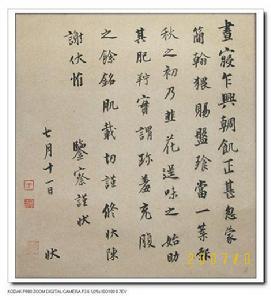 晝寢乍興輖飢正甚忽蒙
簡翰猥賜盤飧當一葉報
秋之初乃韭花逞味之始助
其肥羜實謂珍羞充腹
之餘銘肌載切謹修狀陳
謝伏惟
鑒察謹狀
七月十一日 狀
KODAK P880 ZOOM DIGITAL CAMERA